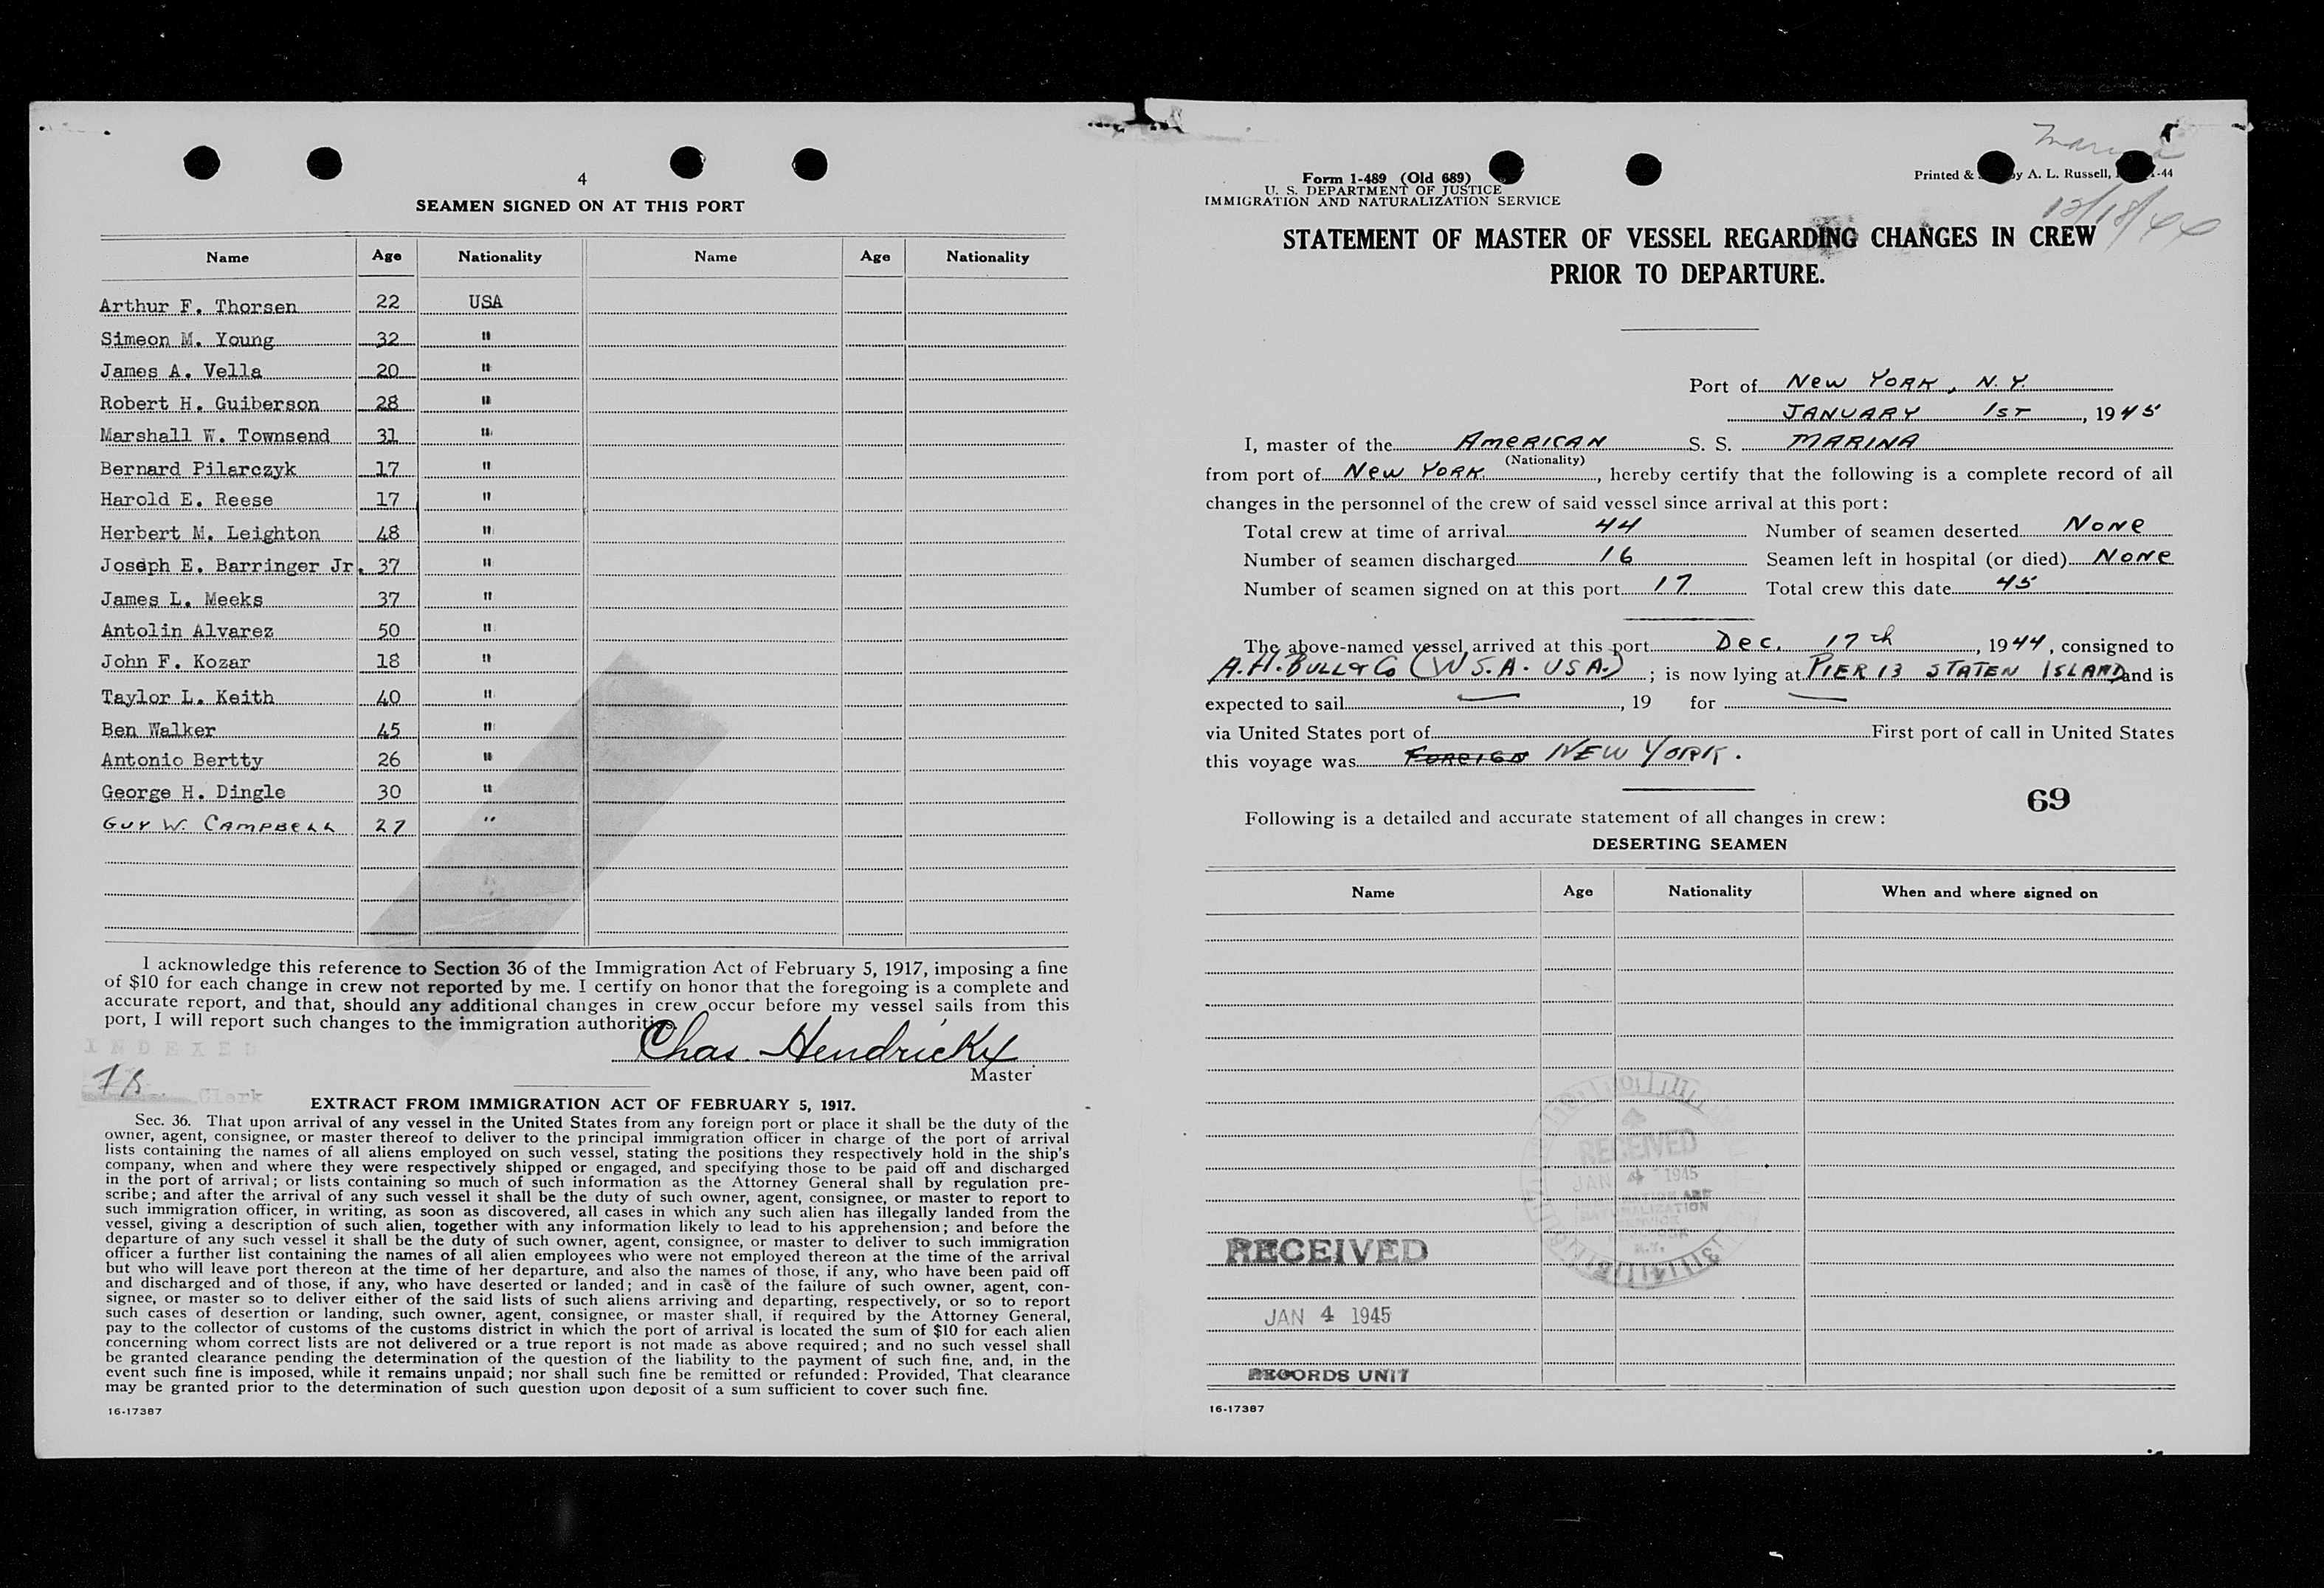 4
SEAMEN SIGNED ON AT THIS PORT
Name Age Nationality Name Age Nationality
Arthur F. Thorsen 22 USA
Simeon M. Young 32 "
James A. Vella 20 "
Robert H. Guiberson 28 "
Marshall W. Townsend 31 "
Bernard Pilarczyk 17 "
Harold E. Reese 17 "
Herbert M. Leighton 48 "
Joseph E. Barringer Jr. 37 "
James L. Meeks 37 "
Antolin Alvarez 50 "
John F. Kozar 18 "
Taylor L. Keith 40 "
Ben Walker 45 "
Antonio Bertty 26 "
George H. Dingle 30 "
GUY W. CAMPBELL 27 "
I acknowledge this reference to Section 36 of the Immigration Act of February 5, 1917, imposing a fine
of $10 for each change in crew not reported by me. I certify on honor that the foregoing is a complete and
accurate report, and that, should any additional changes in crew occur before my vessel sails from this
port, I will report such changes to the immigration authorities.
Chas. Hendrickx
Master
INDEXED
Clerk
EXTRACT FROM IMMIGRATION ACT OF FEBRUARY 5, 1917.
Sec. 36. That upon arrival of any vessel in the United States from any foreign port or place it shall be the duty of the
owner, agent, consignee, or master thereof to deliver to the principal immigration officer in charge of the port of arrival
lists containing the names of all aliens employed on such vessel, stating the positions they respectively hold in the ship's
company, when and where they were respectively shipped or engaged, and specifying those to be paid off and discharged
in the port of arrival; or lists containing so much of such information as the Attorney General shall by regulation pre-
scribe; and after the arrival of any such vessel it shall be the duty of such owner, agent, consignee, or master to report to
such immigration officer, in writing, as soon as discovered, all cases in which any such alien has illegally landed from the
vessel, giving a description of such alien, together with any information likely to lead to his apprehension; and before the
departure of any such vessel it shall be the duty of such owner, agent, consignee, or master to deliver to such immigration
officer a further list containing the names of all alien employees who were not employed thereon at the time of the arrival
but who will leave port thereon at the time of her departure, and also the names of those, if any, who have been paid off
and discharged and of those, if any, who have deserted or landed; and in case of the failure of such owner, agent, con-
signee, or master so to deliver either of the said lists of such aliens arriving and departing, respectively, or so to report
such cases of desertion or landing, such owner, agent, consignee, or master shall, if required by the Attorney General,
pay to the collector of customs of the customs district in which the port of arrival is located the sum of $10 for each alien
concerning whom correct lists are not delivered or a true report is not made as above required; and no such vessel shall
be granted clearance pending the determination of the question of the liability to the payment of such fine, and, in the
event such fine is imposed, while it remains unpaid; nor shall such fine be remitted or refunded: Provided, That clearance
may be granted prior to the determination of such question upon deposit of a sum sufficient to cover such fine.
16-17387
Marina
Form 1-489 (Old 689)
U. S. DEPARTMENT OF JUSTICE
IMMIGRATION AND NATURALIZATION SERVICE
Printed & by A. L. Russell, -44
12/18/44
STATEMENT OF MASTER OF VESSEL REGARDING CHANGES IN CREW
PRIOR TO DEPARTURE.
Port of New YORK, N.Y.
JANUARY 1ST, 1945
I, master of the AMERICAN S. S. MARINA
(Nationality)
from port of New YORK, hereby certify that the following is a complete record of all
changes in the personnel of the crew of said vessel since arrival at this port:
Total crew at time of arrival 44 Number of seamen deserted None
Number of seamen discharged 16 Seamen left in hospital (or died) None
Number of seamen signed on at this port 17 Total crew this date 45
The above-named vessel arrived at this port Dec. 17th, 1944, consigned to
A.H. BULL & Co (W.S.A. USA.); is now lying at PIER 13 STATEN ISLAND and is
expected to sail —, 19 for —
via United States port of First port of call in United States
this voyage was FOREIGN NEW YORK.
69
Following is a detailed and accurate statement of all changes in crew:
DESERTING SEAMEN
Name Age Nationality When and where signed on
RECEIVED
JAN 4 1945
RECEIVED
JAN 4 1945
RECORDS UNIT
16-17387